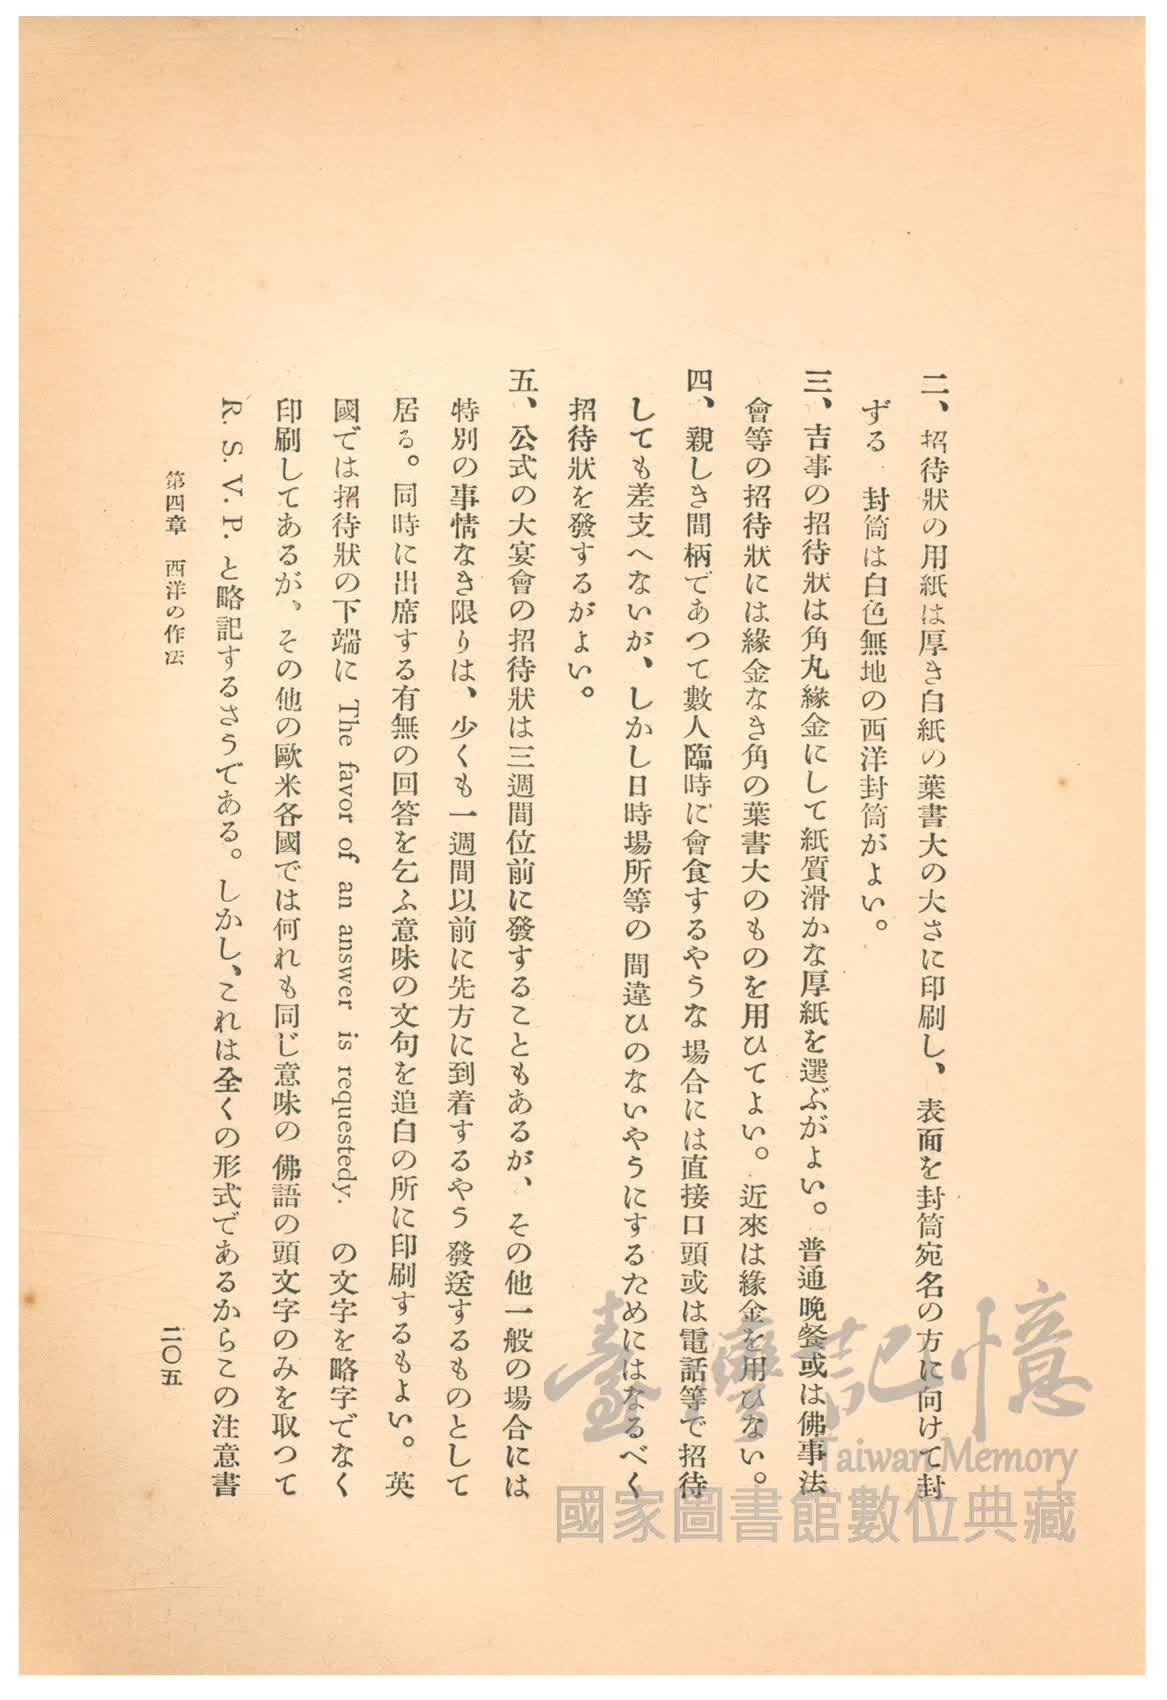 二、招待狀の用紙は厚き白紙の葉書大の大さに印刷し、表面を封筒宛名の方に向けて封
ずる 封筒は白色無地の西洋封筒がよい。
三、吉事の招待狀は角丸緣金にして紙質滑かな厚紙を選ぶがよい。普通晩餐或は佛事法
會等の招待狀には緣金なき角の葉書大のものを用ひてよい。近來は緣金を用ひない。
四、親しき間柄であつて數人臨時に會食するやうな場合には直接口頭或は電話等で招待
しても差支へないが、しかし日時場所等の間違ひのないやうにするためにはなるべく
招待狀を發するがよい。
五、公式の大宴會の招待狀は三週間位前に發することもあるが、その他一般の場合には
特別の事情なき限りは、少くも一週間以前に先方に到着するやう發送するものとして
居る。同時に出席する有無の回答を乞ふ意味の文句を追白の所に印刷するもよい。英
國では招待狀の下端に The favor of an answer is requestedy. の文字を略字でなく
印刷してあるが、その他の歐米各國では何れも同じ意味の佛語の頭文字のみを取つて
R. S. V. P. と略記するさうである。しかし、これは全くの形式であるからこの注意書
第四章 西洋の作法
二〇五
臺灣記憶
Taiwan Memory
國家圖書館數位典藏